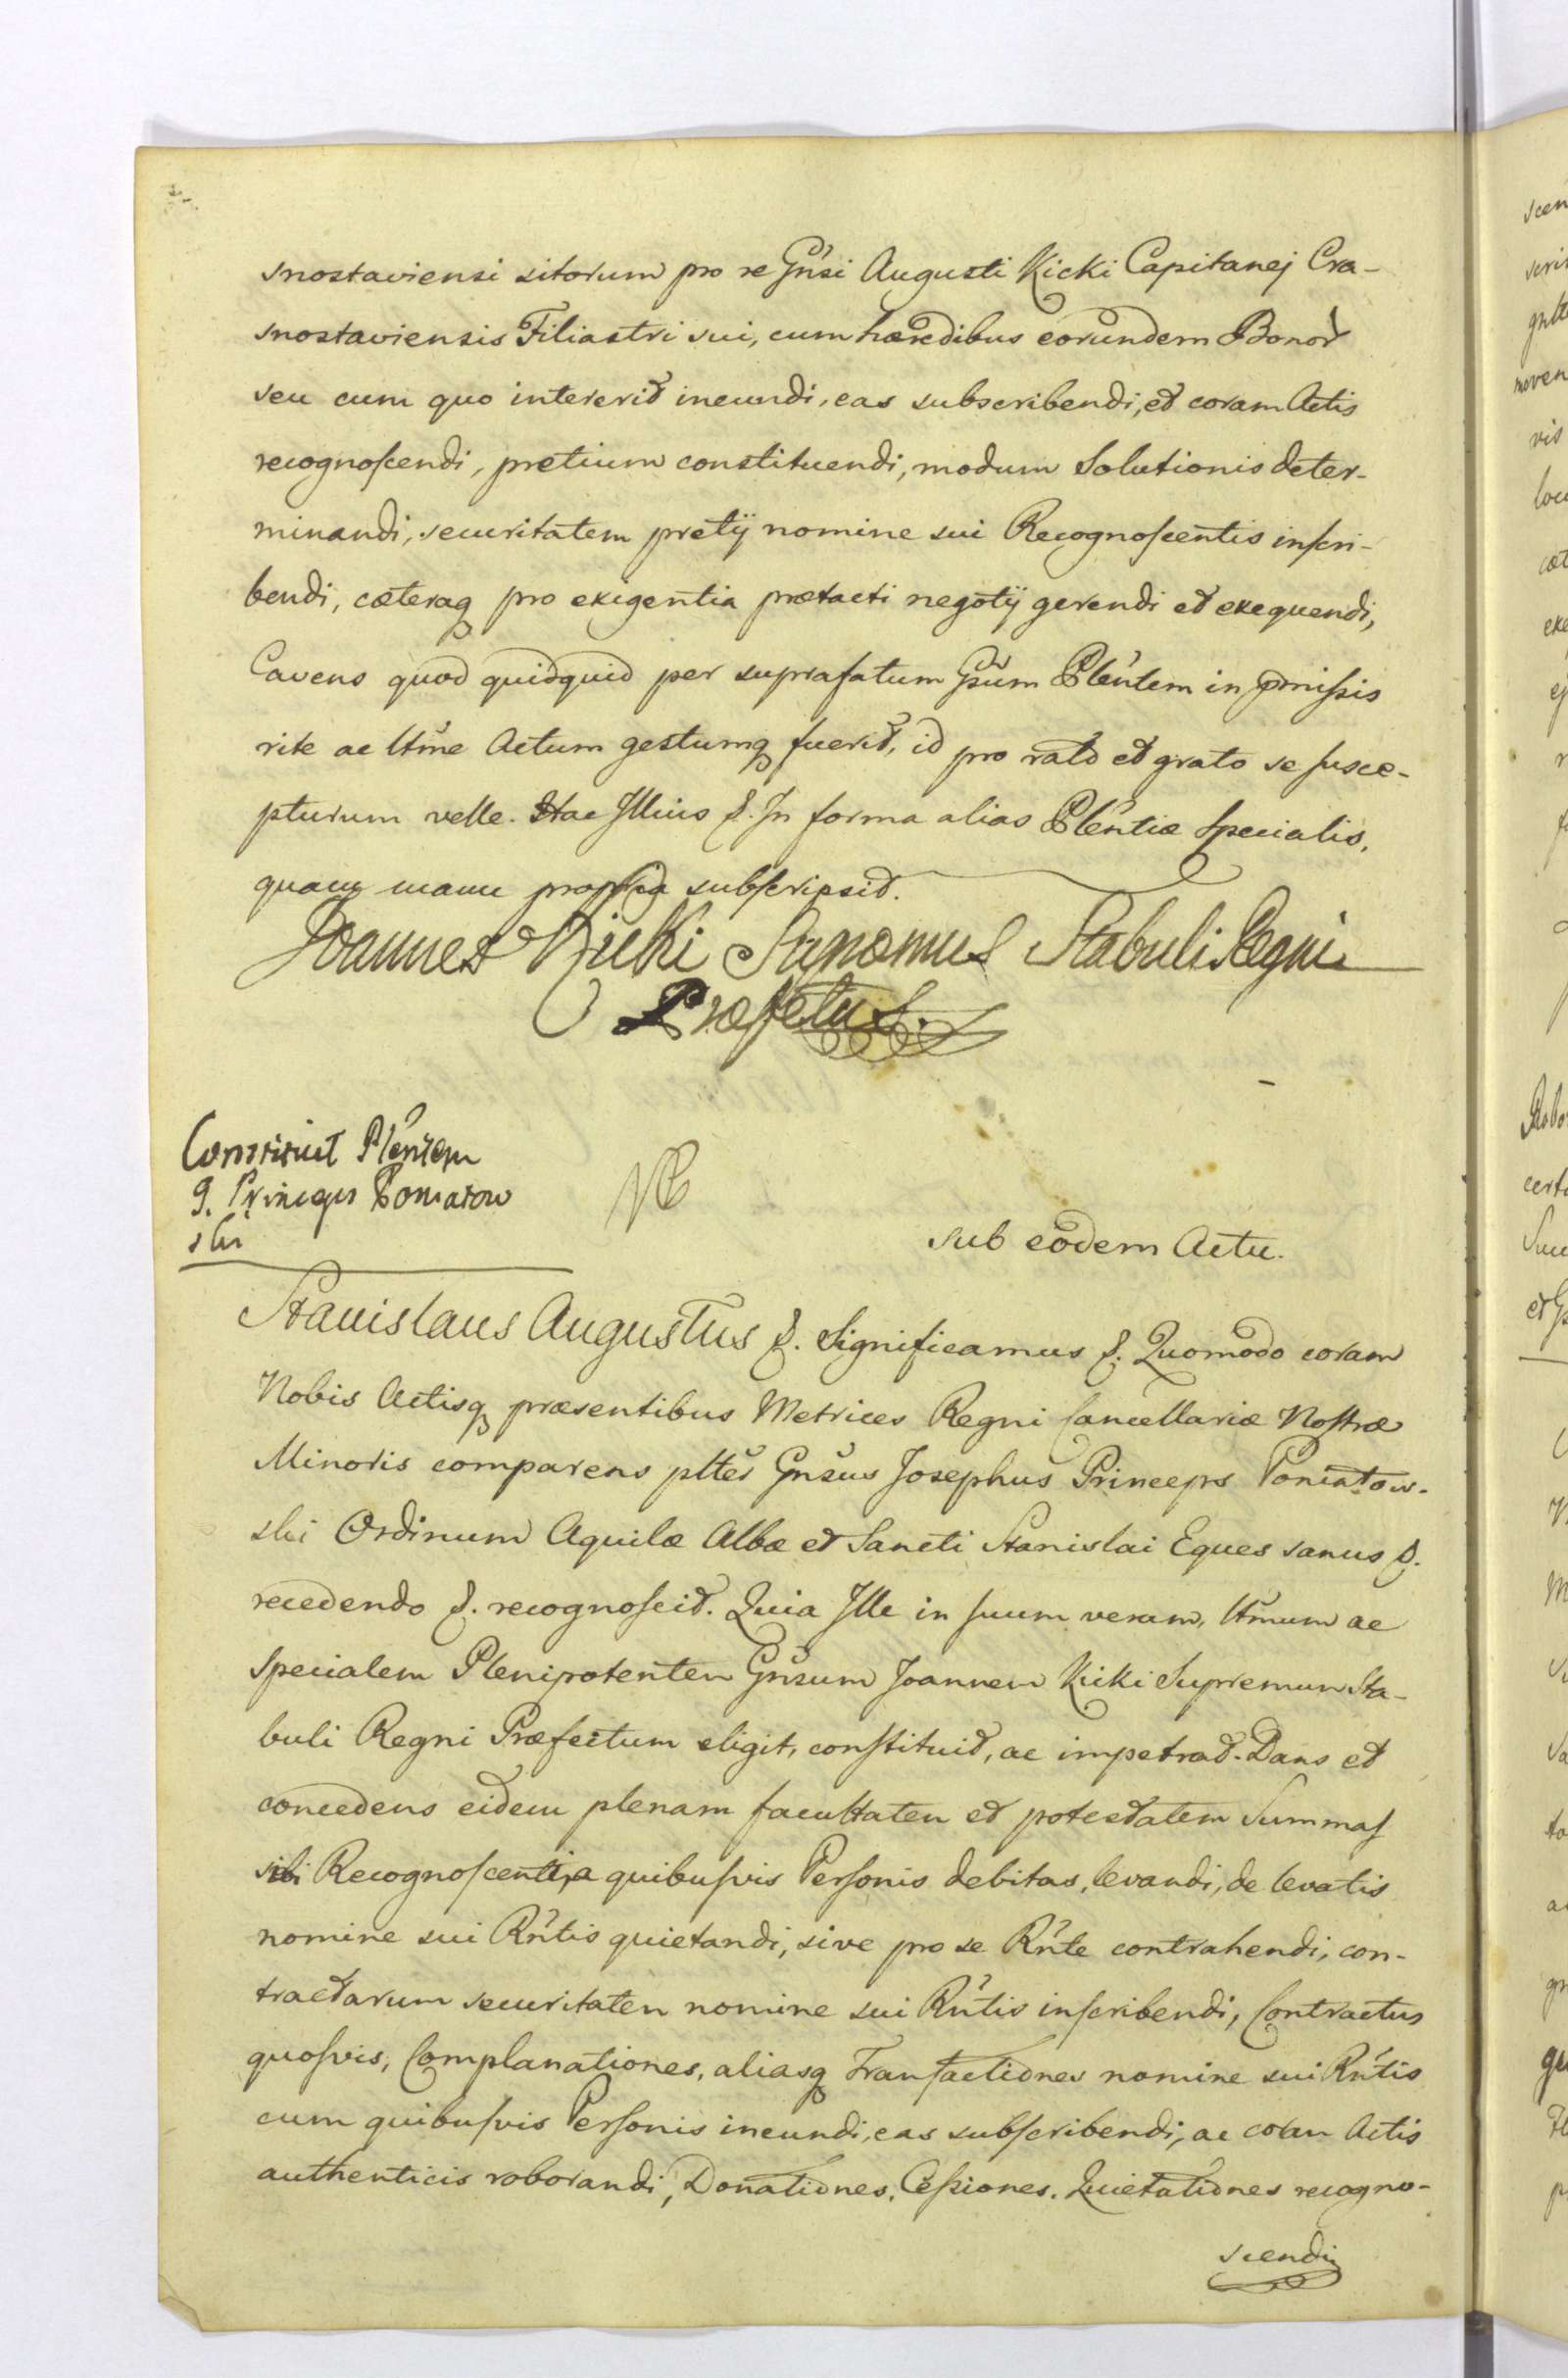 snostaviensi sitorum pro re Gnsi Augusti Kicki Capitanej Cra-
snostaviensis Filiastri sui, cum hæredibus eorundem Bonor
seu cum quo intererit ineundi, eas subscribendi, et coram Actis
recognoscendi, pretium constituendi, modum Solutionis deter-
minandi, securitatem pretij nomine sui Recognoscentis inscri-
bendi, cæteraq pro exigentia prætacti negotij gerendi et exequendi,
Cavens quod quidquid per suprafatum Gsum Plentem in pmissis
rite ac ltme Actum gestumq fuerit, id pro rato et grato se susce-
pturum velle. Hac Illius &. In forma alias Plentiæ Specialis,
quam manu propria subscripsit.
Joannes Kicki Supremus Stabuli Regni
Præfectus.
Constituit Plentem
G. Princeps Poniatow
ski
sub eodem Actu.
Stanislaus Augustus &. Significamus &. Quomodo coram
Nobis Actisq præsentibus Metrices Regni Cancellariæ Nostræ
Minoris comparens plter Gnsus Josephus Princeps Poniatow-
ski Ordinum Aquilæ Albæ et Sancti Stanislai Eques sanus &.
recedendo &. recognoscit. Quia Ille in suum verum, ltmum ac
specialem Plenipotentem Gnsum Joannem Kicki Supremum Sta-
buli Regni Præfectum eligit, constituit, ac impetrat. Dans et
concedens eidem plenam facultatem et potestatem Summas
sibi Recognoscenti, a quibusvis Personis debitas, levandi, de levatis
nomine sui Rntis quietandi, sive pro se Rnte contrahendi, con-
tractarum securitatem nomine sui Rntis inscribendi, Contractus
quosvis, Complanationes, aliasq Transactiones nomine sui Rntis
cum quibusvis Personis ineundi, eas subscribendi, ac coram Actis
authenticis roborandi, Donationes, Cessiones, Quietationes recogno-
scendi